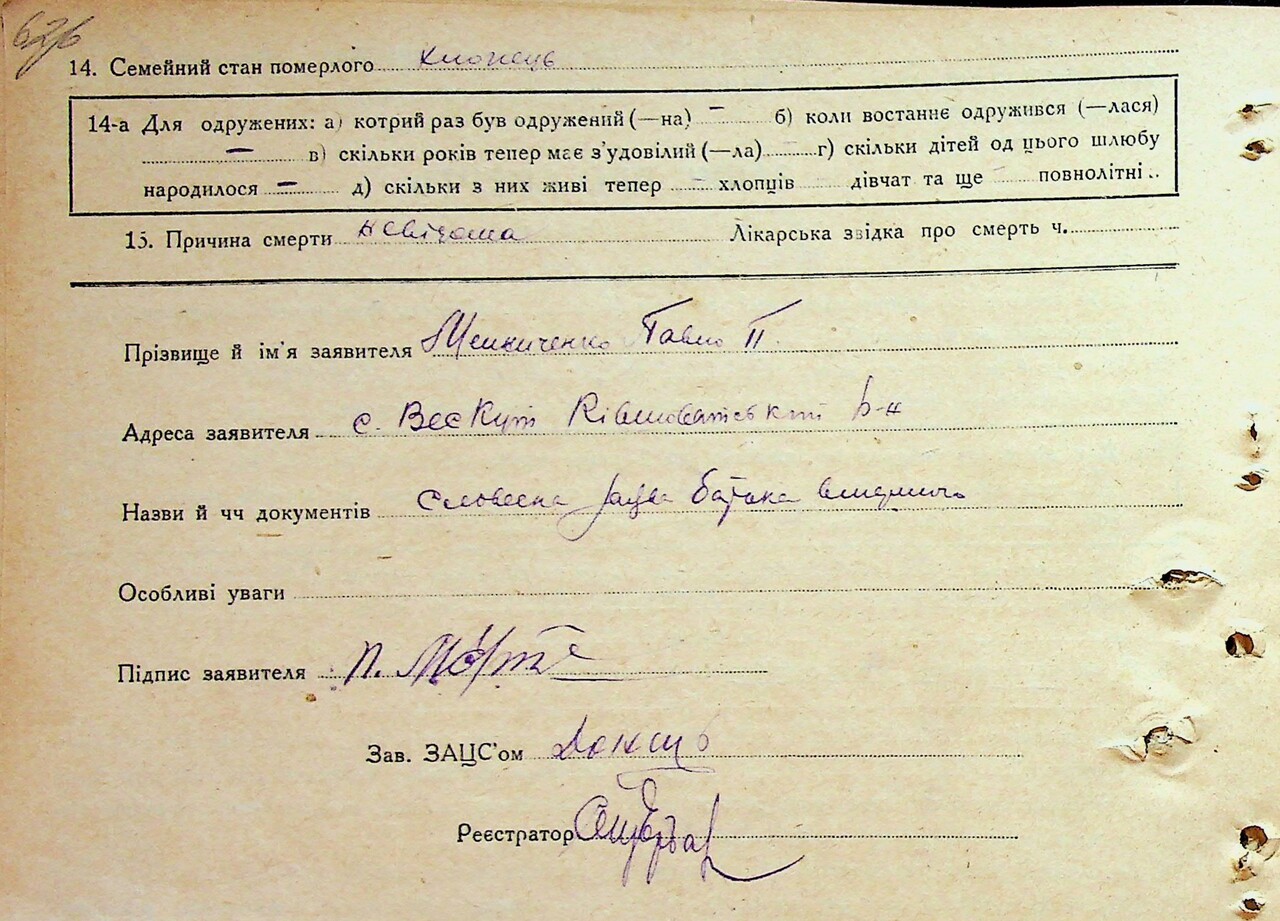 626
14. Семейний стан померлого хлопець
14-а Для одружених: а) котрий раз був одружений (—на) — б) коли востаннє одружився (—лася)
— в) скільки років тепер має з’удовілий (—ла) г) скільки дітей од цього шлюбу
народилося — д) скільки з них живі тепер — хлопців дівчат та ще — повнолітні
15. Причина смерти невідома Лікарська звідка про смерть ч.
Прізвище й ім’я заявителя Павло П.
Адреса заявителя с. р-н
Назви й чч документів Словесна заява батька
Особливі уваги
Підпис заявителя П.
Зав. ЗАЦС’ом
Реєстратор